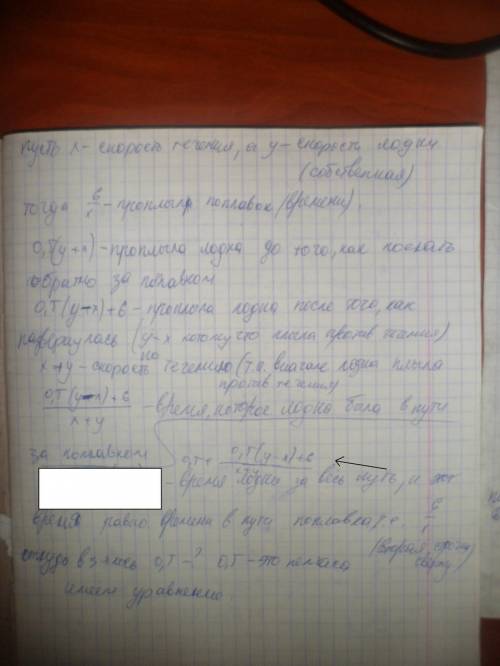 пусть x - скорость течения, а y - скорость лодки
(собственная)
тогда 6/x - проплыл поплавок (времени).
0,7(y-x) - проплыла лодка до того, как поехать
обратно за поплавком
0,7(y-x)+6 - проплыла лодка после того, как
развернулась (y-x потому что плыла против течения)
x+y - скорость по течению (т.к. вначале лодка плыла
против течения)
(0,7(y-x)+6)/(x+y) - время, которое лодка была в пути
за поплавком
0,7+ (0,7(y-x)+6)/(x+y) ←
- время лодки за весь путь, и это
время равно времени в пути поплавка т.е. 6/x
(вторая строка сверху)
откуда взялись 0,7-? 0,7 - это
имеем уравнение.